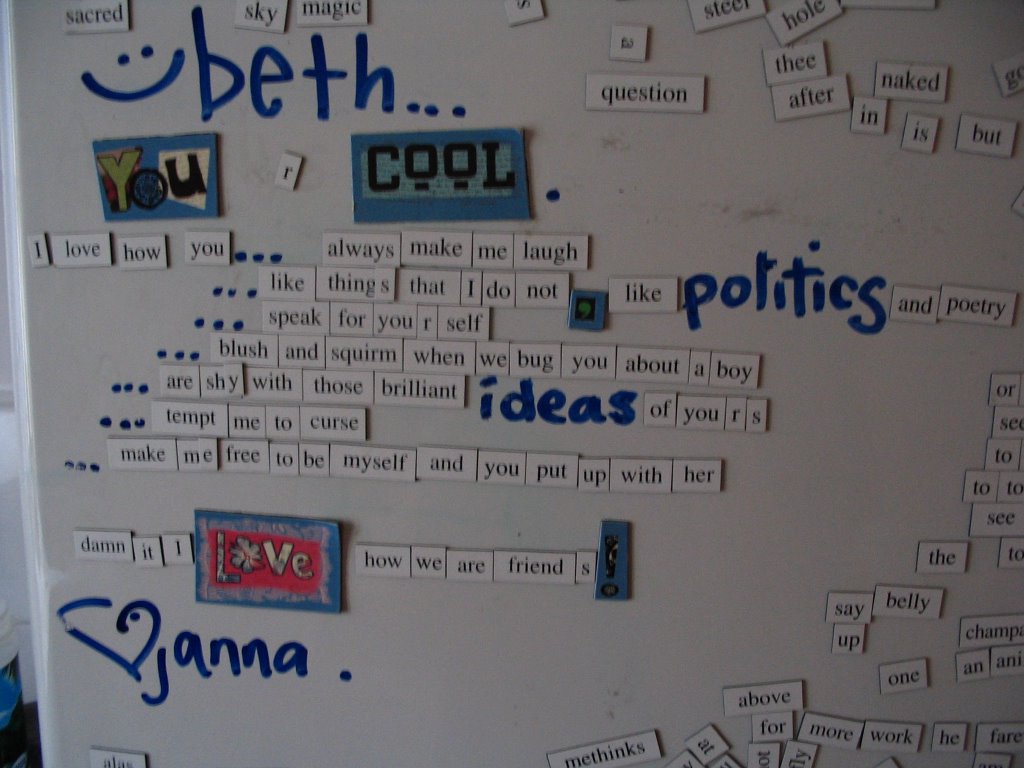 sacred sky magic s steel hole
beth...
a
question
thee
after
naked
in is but
YOU r COOL.
I love how you... always make me laugh
...like things that I do not, like politics and poetry
...speak for you r self
...blush and squirm when we bug you about a boy
...are shy with those brilliant ideas of you r s
...tempt me to curse
...make me free to be myself and you put up with her
damn it I LOVE how we are friend s!
janna.
or
see
to
to to
see
the to
say belly
up
one
an ani
above
for more work he fare
methinks at
fly
alas